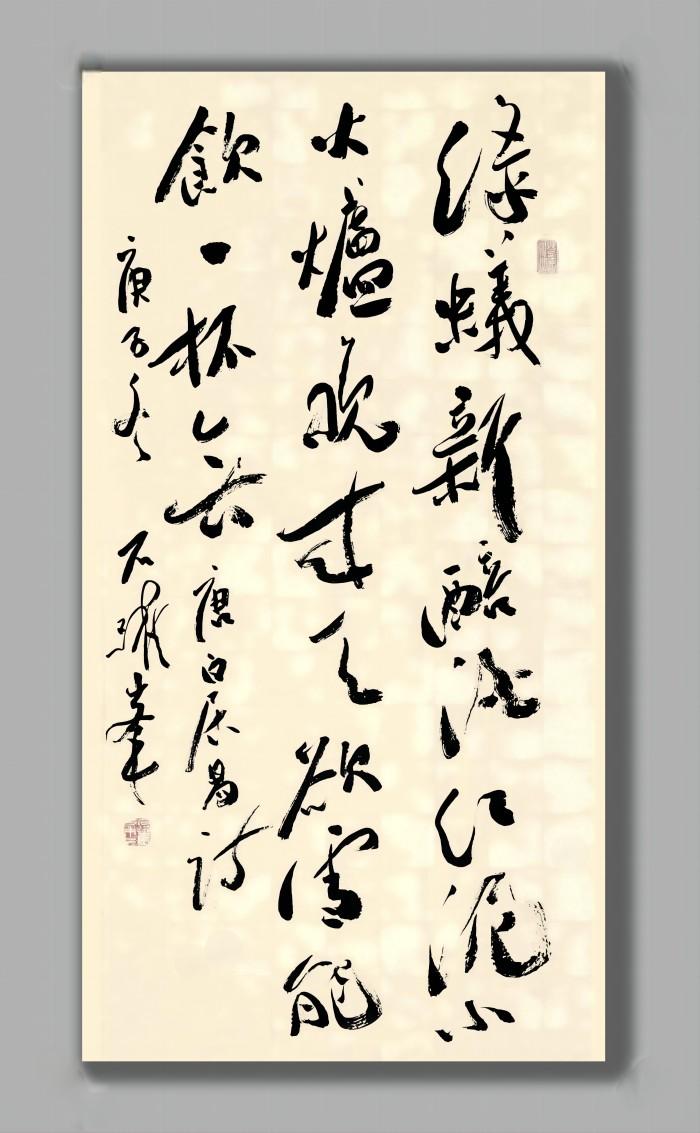 綠蟻新醅酒紅泥小
火爐晚來天欲雪能
飲一杯無 唐白居易詩
庚子冬 石躍峯